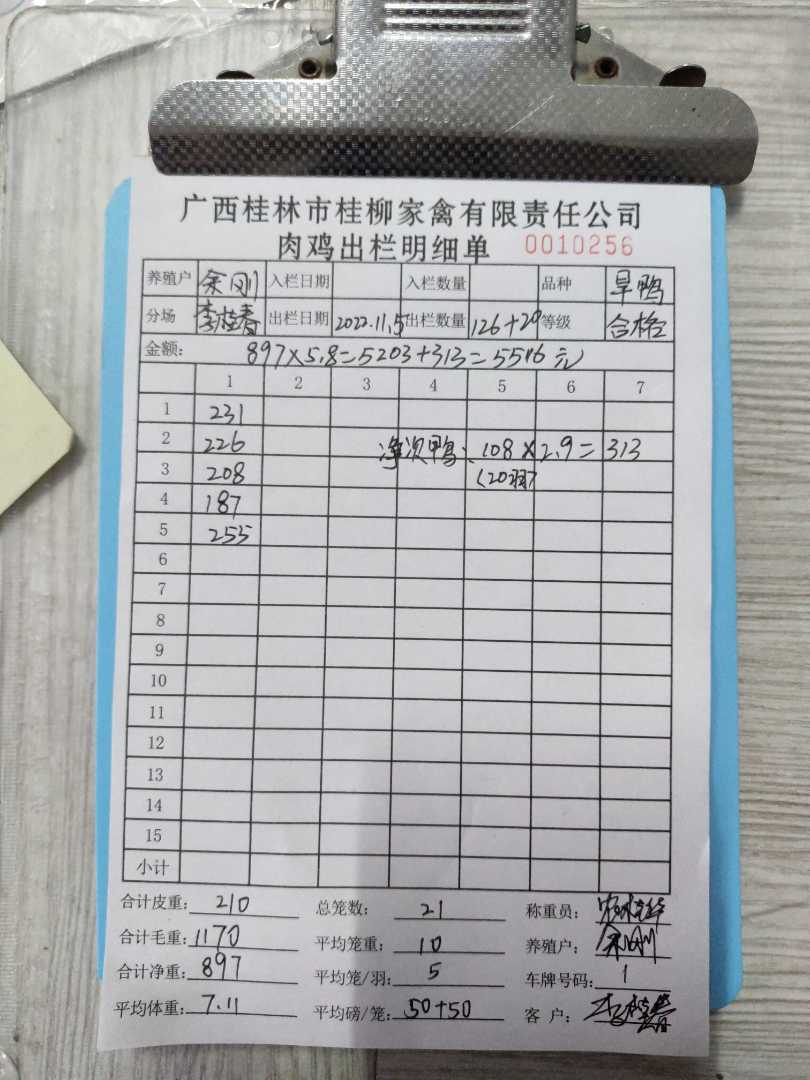 广西桂林市桂柳家禽有限责任公司
肉鸡出栏明细单 0010256
养殖户 余刚 入栏日期 入栏数量 品种 旱鸭
分场 李桂春 出栏日期 2022.11.5 出栏数量 126+20 等级 合格
金额: 897×5.8=5203+313=5516元
1 2 3 4 5 6 7
1 231
2 226 净次鸭、108×2.9=313
3 208 (20羽)
4 187
5 255
6
7
8
9
10
11
12
13
14
15
小计
合计皮重: 210 总笼数: 21 称重员:
合计毛重: 1170 平均笼重: 10 养殖户: 余刚
合计净重: 897 平均笼/羽: 5 车牌号码: 1
平均体重: 7.11 平均磅/笼: 50+50 客户: 李桂春